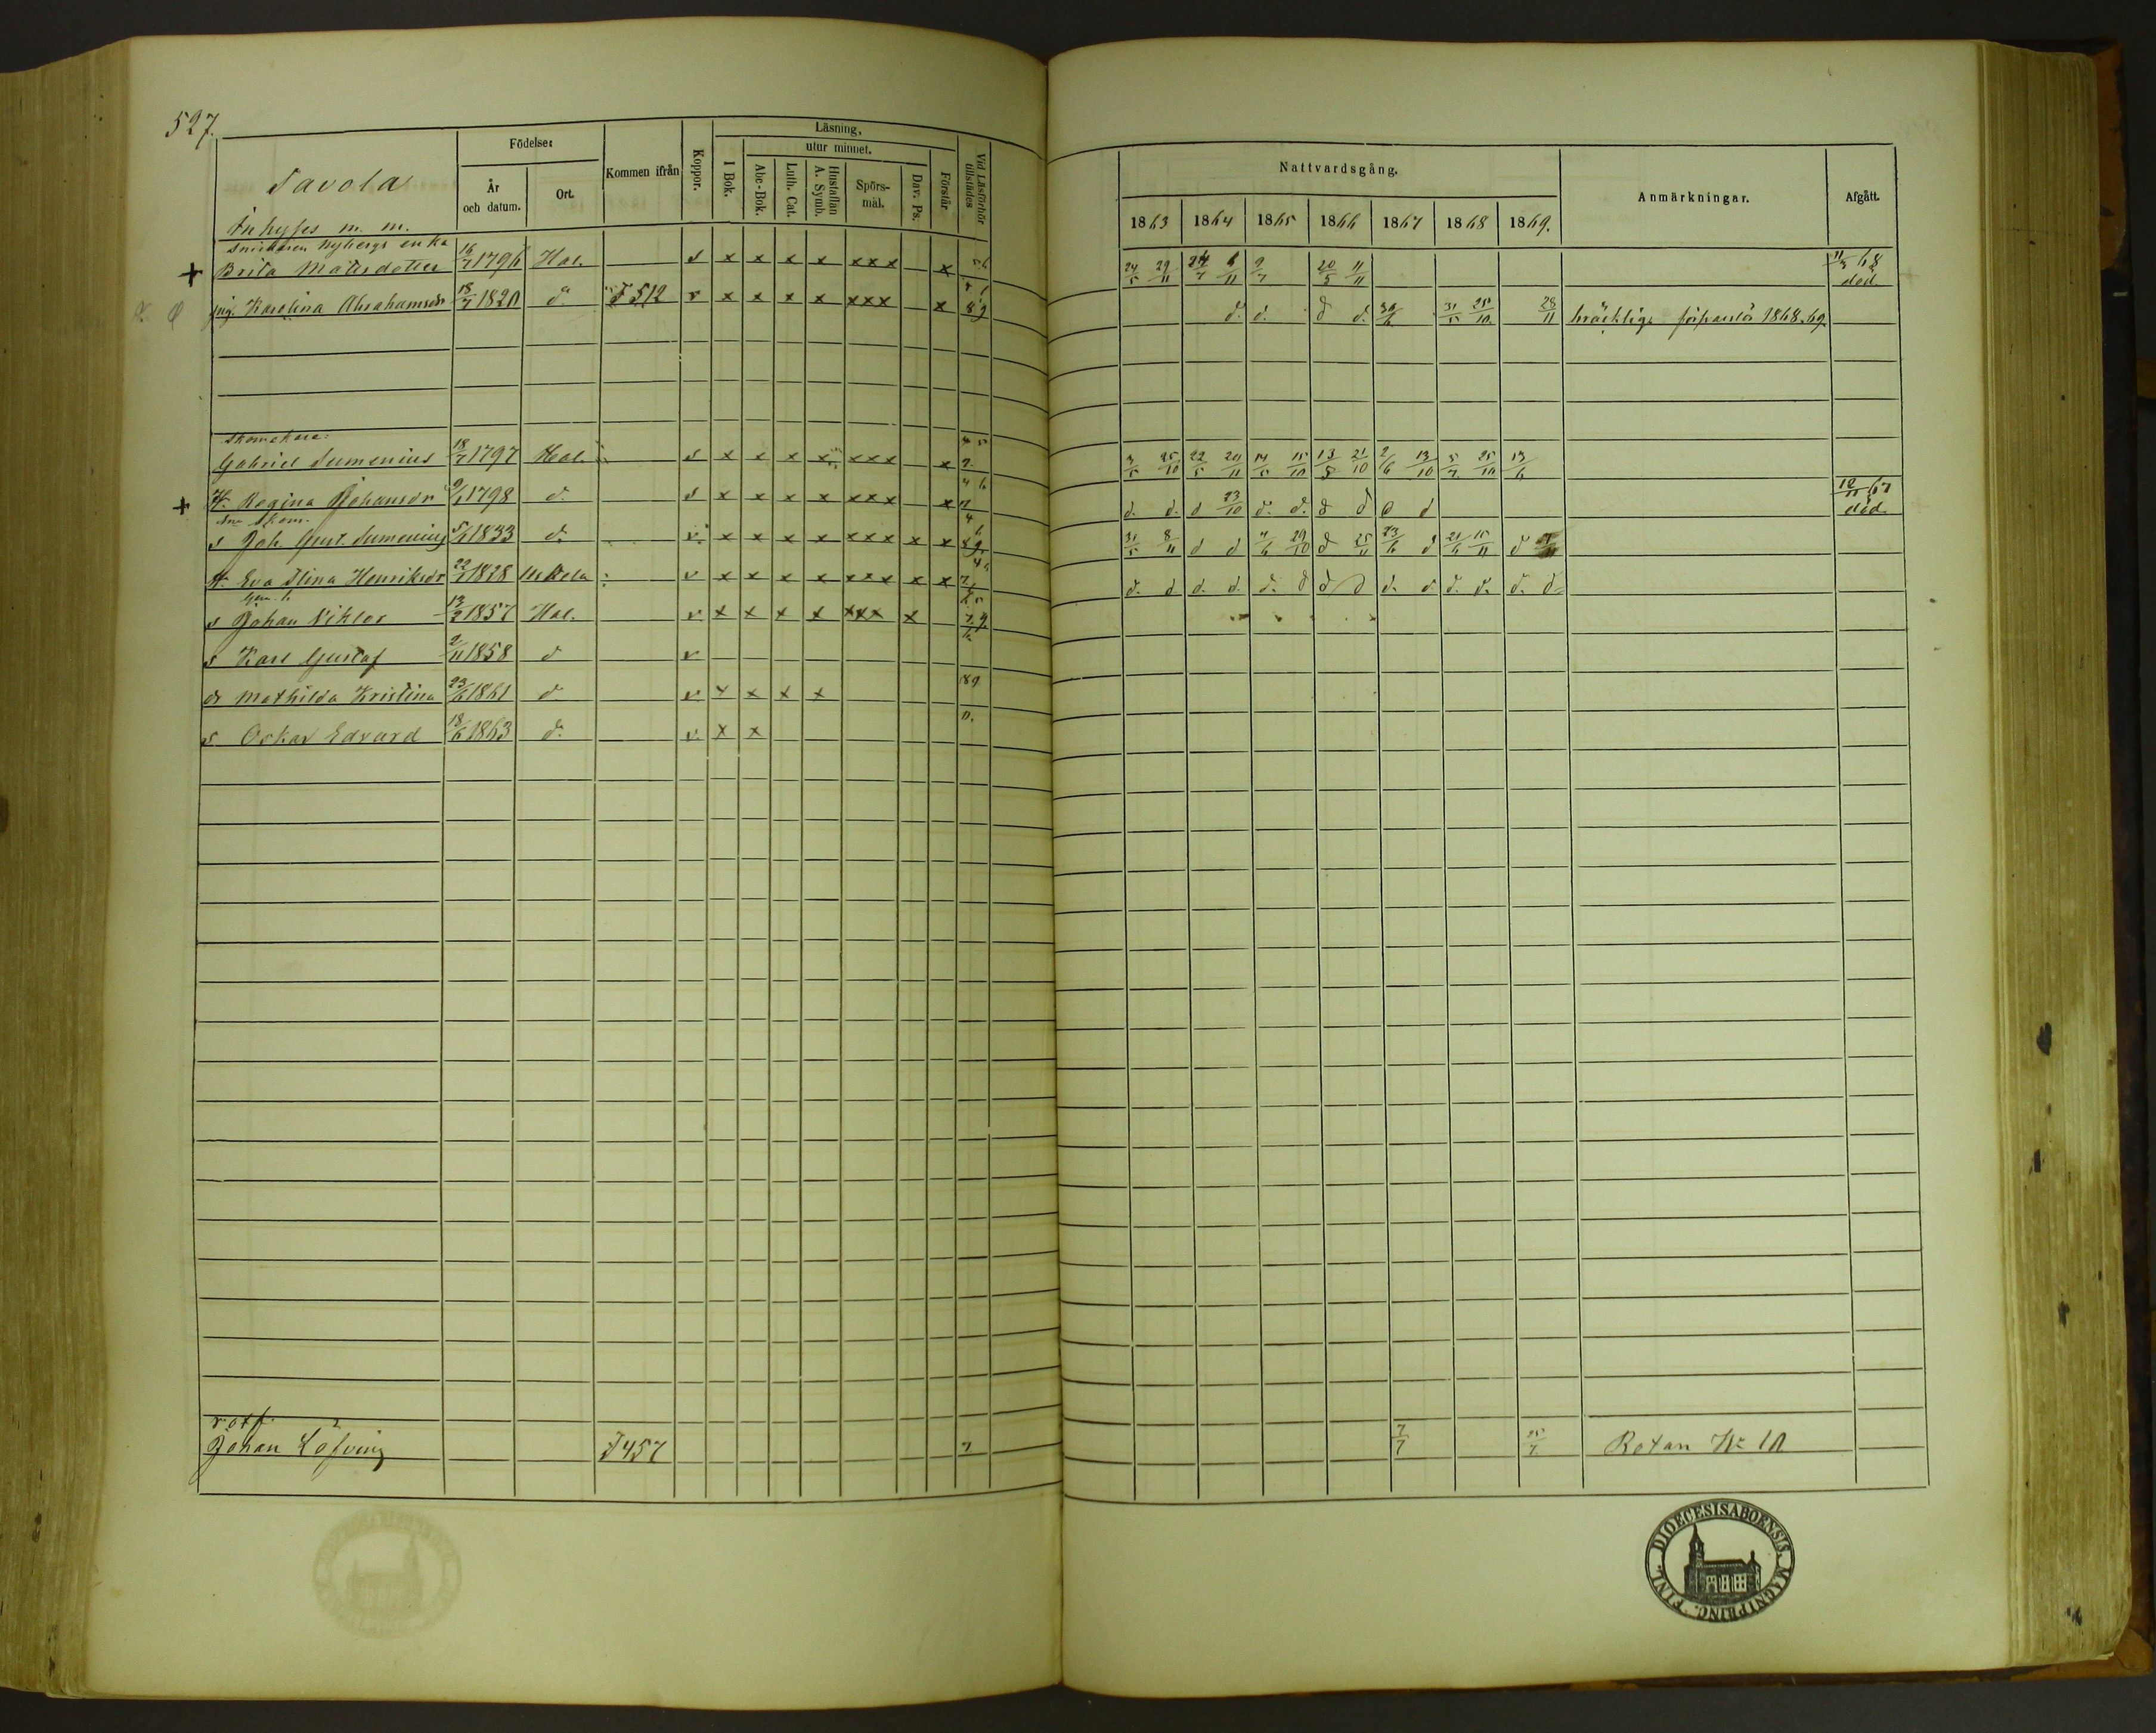 527.
Savola
Inhyses m. m.
Födelse:
År och datum.
Ort.
Kommen ifrån
Koppor.
Läsning.
I Bok.
utur minnet.
Abc-Bok.
Luth. Cat.
Hustaflan A. Symb.
Spörs-mål.
Dav. Ps.
Förstår
Vid Läsförhör tillstädes
Nattvardsgång.
1863 1864 1865 1866 1867 1868 1869.
Anmärkningar.
Afgått.
Snickaren Nybergs enka
+ Brita Matsdotter 16/7 1796 Hal. s x x x x xxx x 24/5 29/11 9/7 20/5 11/11 68 död.
pig. Karolina Abrahamsdr 18/7 1820 d:o T 512 v x x x x xxx x 89 d. d. d d. 30/6 31/5 25/10 28/11 bräcklig. 1868. 69.
Skomakare:
Gabriel Sumenius 18/7 1797 Hal. s x x x x xxx x 3/5 25/10 22/5 20/11 14/5 15/10 13/5 21/10 2/6 13/10 5/7 25/10 13/6
+ H. Regina Johansdr 1798 d. s x x x x xxx x d. d. d 23/10 d. d. d d d d 12/11 67 död.
Skom.
s Joh. Gust. Sumenius 5/6 1833 d. v x x x x xxx x x 31/5 8/11 d d 4/6 29/10 d 25/11 23/6 d 21/6 15/11 d
H. Eva Stina Henriksdr 22/7 1828 Uskela v x x x x xxx x x d. d d. d. d. d d d d. d. d. d. d. d
s Johan Viktor 13/2 1857 Hal. v x x x x xxx x
s Karl Gustaf 2/11 1858 d v
dr Mathilda Kristina 23/6 1861 d v x x x x 89
s Oskar Edvard 18/6 1863 d:o v. x x
rotf.
Johan Löfving T 457 7 7/7 25/7 Rotan No 10
FINL. DIOECESISABOENSIS. MAGNIPRINC.